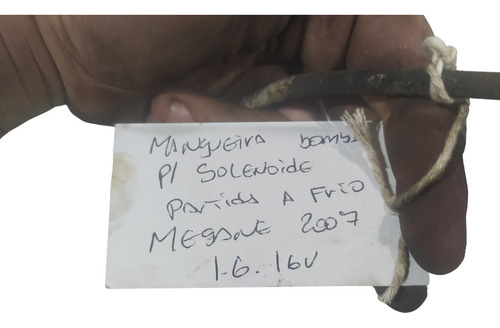 MANGUEIRA bomba
P/ SOLENOIDE
PARTIDA A FRIO
MEGANE 2007
1.6. 16V